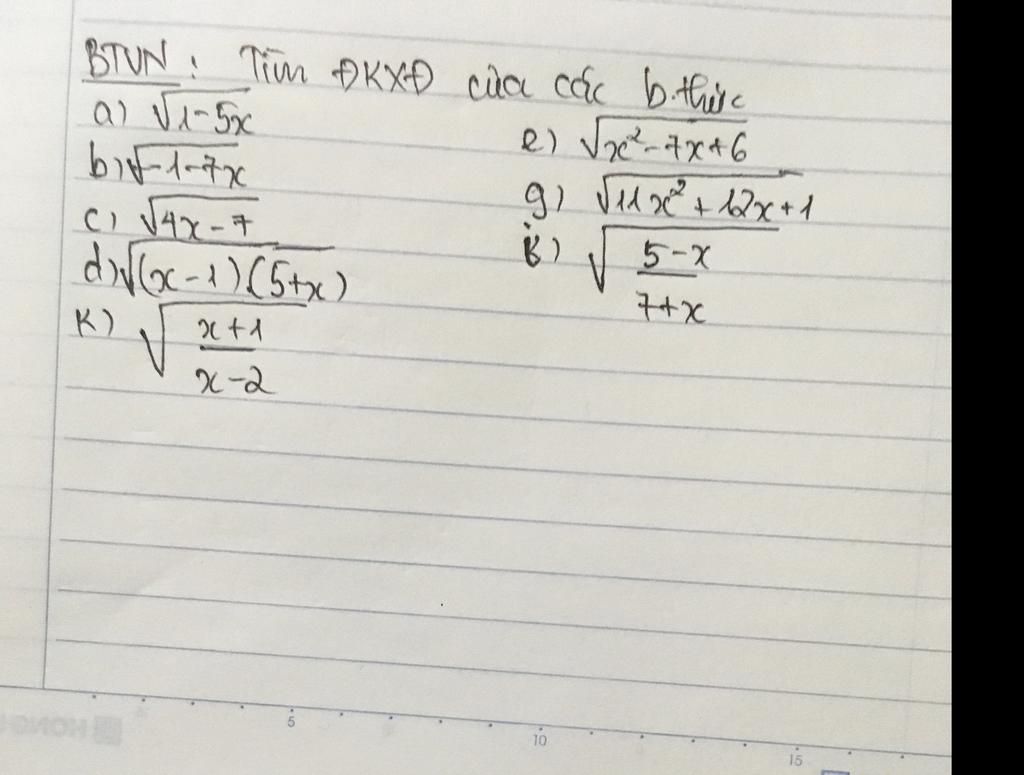 BTVN : Tìm ĐKXĐ của các b.thức
a) √1-5x
b) √-1-7x
c) √4x-7
d) √(x-1)(5+x)
k) √x+1/x-2
e) √x²-7x+6
g) √11x²+12x+1
i) √5-x/7+x
5
10
15